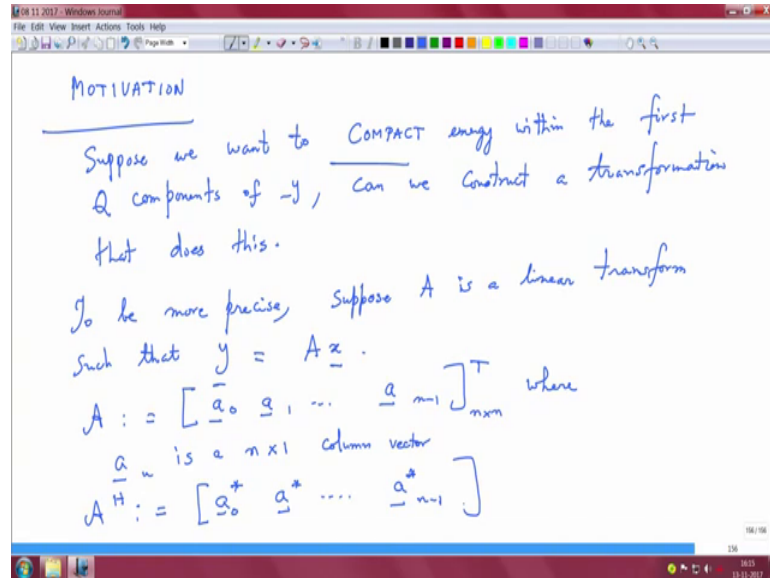 08 11 2017 - Windows Journal
File Edit View Insert Actions Tools Help
Page Width
MOTIVATION
Suppose we want to COMPACT energy within the first
Q components of y, can we construct a transformation
that does this.
To be more precise, suppose A is a linear transform
such that y = A x .
A : = [ a 0 a 1 ... a n-1 ] T n×n where
a n is a n×1 column vector
A H : = [ a 0 * a * .... a * n-1 ]
156/156
156
16:15
13-11-2017